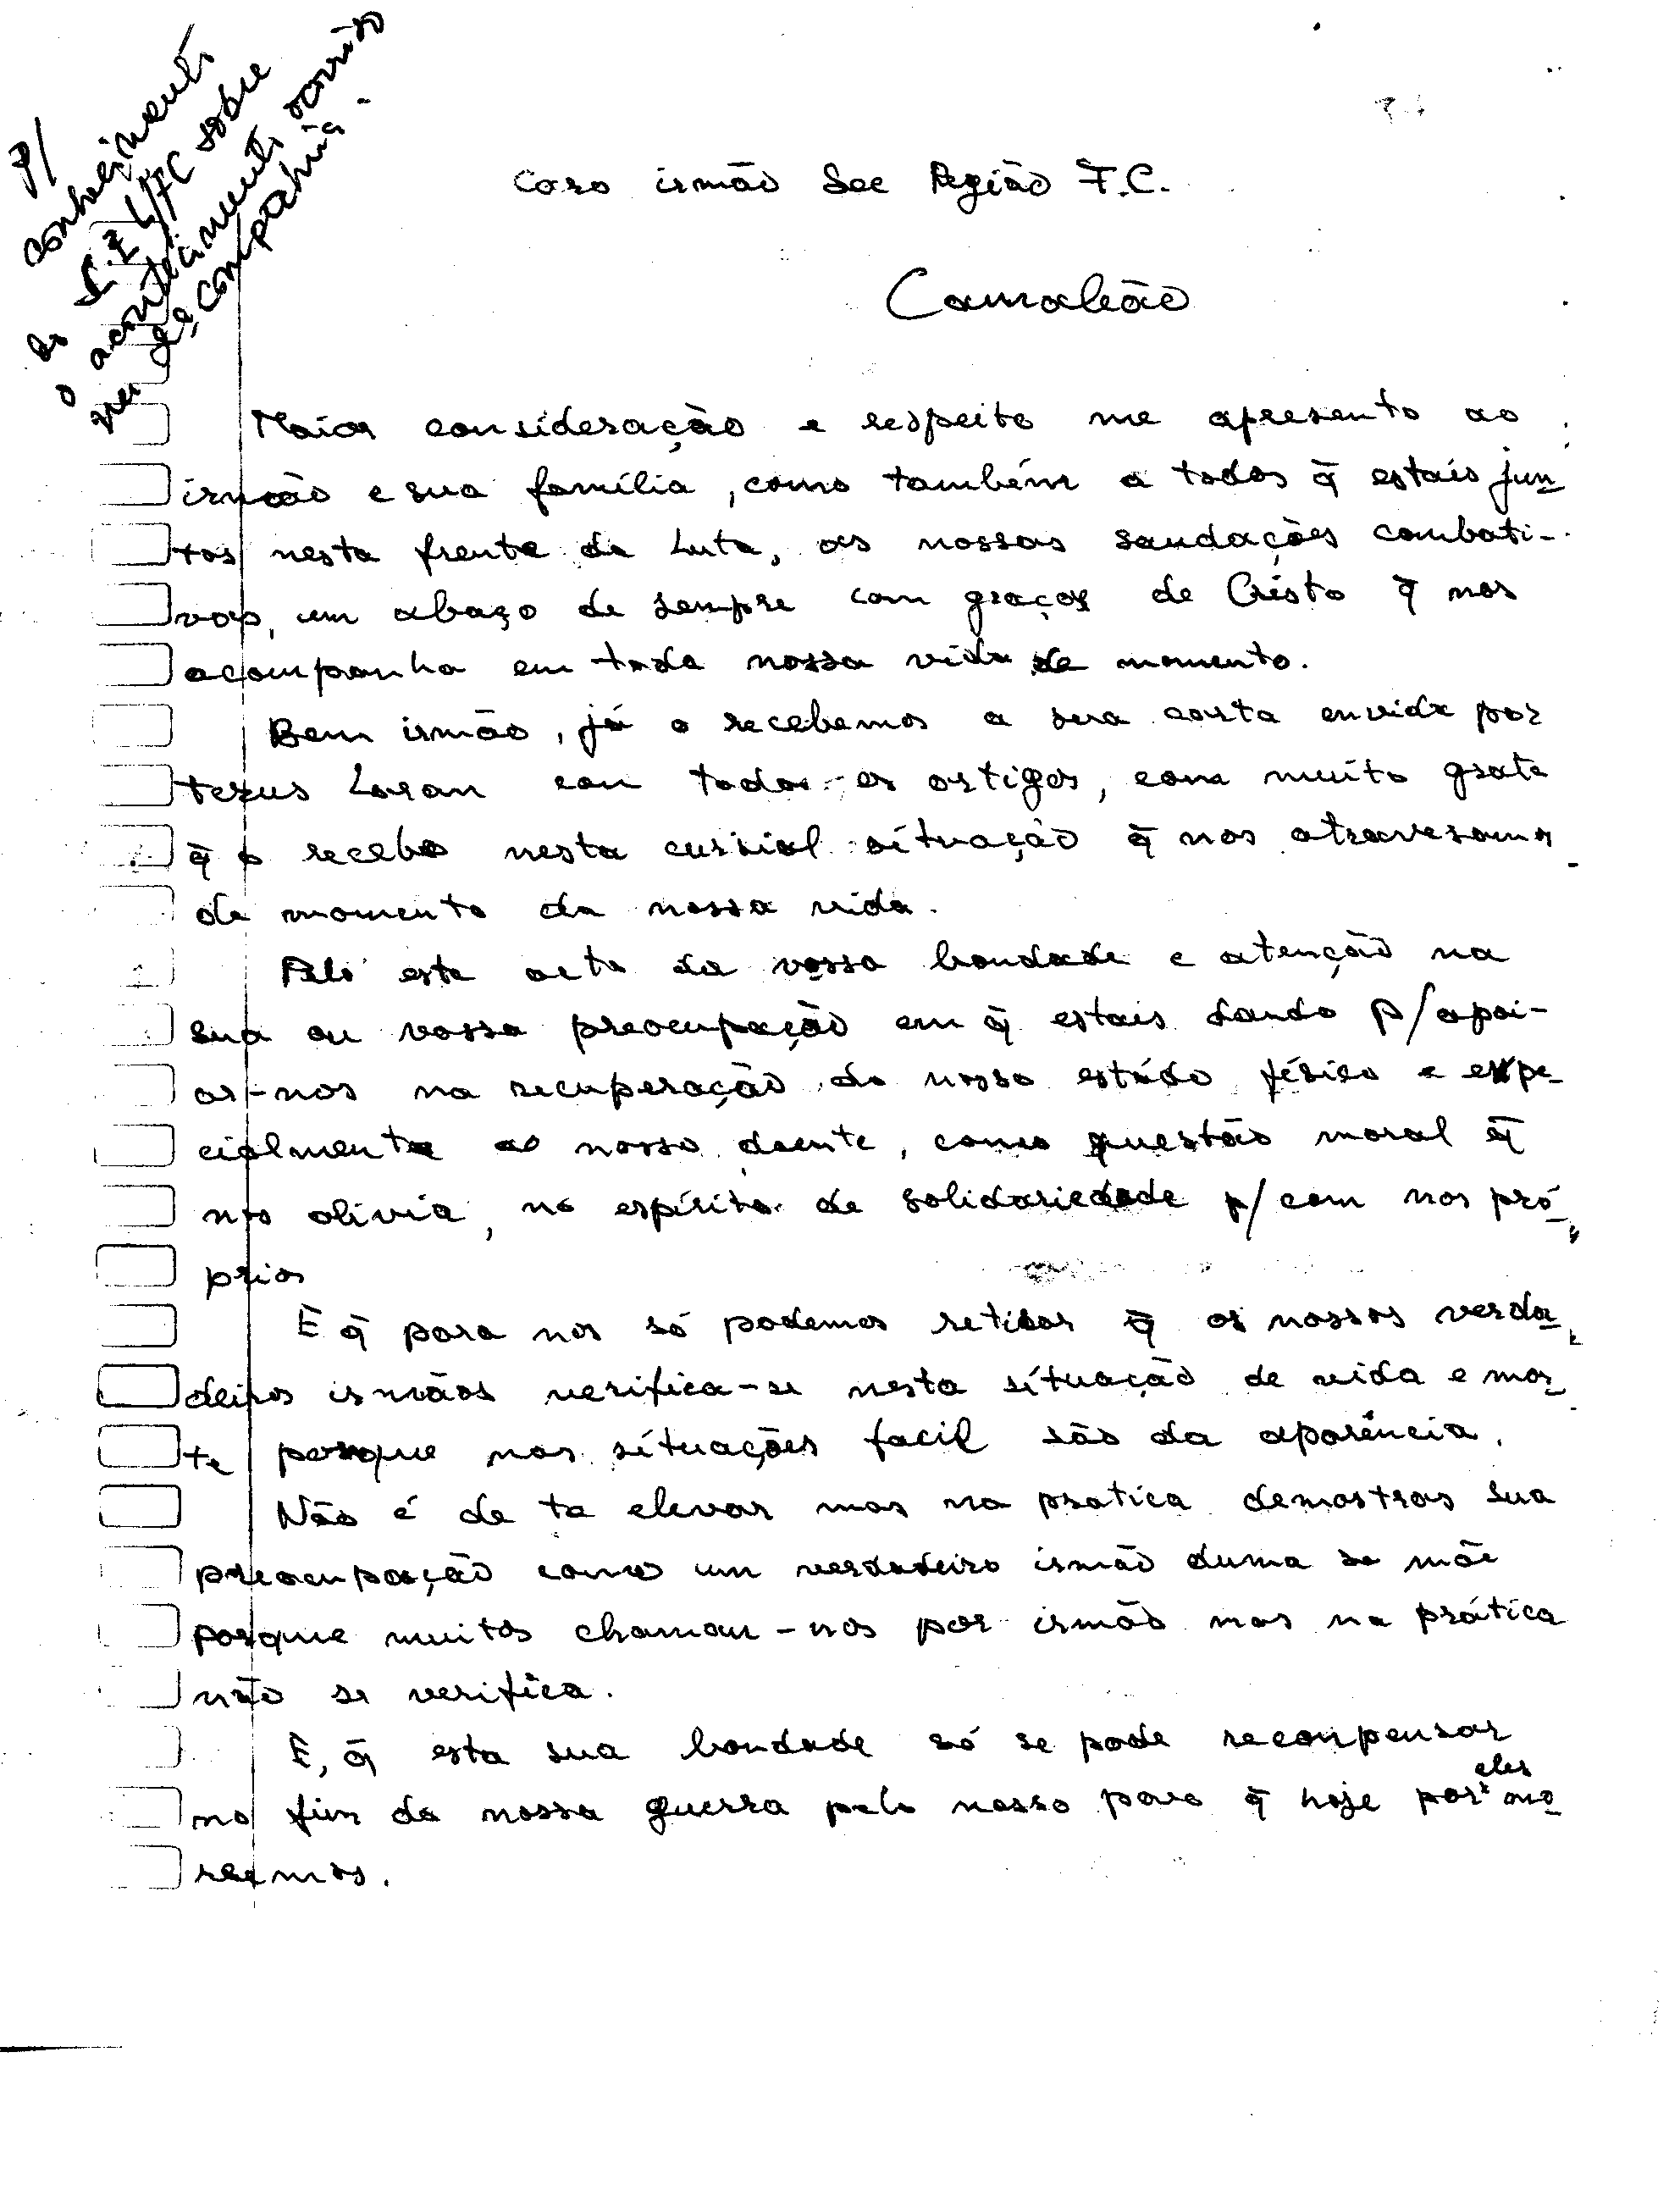 P/
conhecimento
do S.I L/FC sobre
o acontecimento ocorrido
na 2ª companhia.
Caro irmão Sec Região F.C.
Camaleão
Maior consideração e respeito me apresento ao
irmão e sua família, como também a todos q̄ estais jun-
tos nesta frente da Luta, as nossas saudações combati-
vas, um abaço de sempre com graças de Cristo q̄ nos
acompanha em toda nossa vida de momento.
Bem irmão, já o recebemos a sua carta envida por
terus Loran con todos os artigos, com muito grata
q̄ o recebo nesta cursial situação q̄ nos atravesamos
de momento da nossa vida.
Pelo este acto da vossa bondade e atenção na
sua ou vossa preocupação em q̄ estais dando p/apoi-
ar-nos na recuperação do nosso estádo físico e expe-
cialmente ao nosso doente, como questão moral q̄
nos olivia, no espírito de solidariedade p/com nos pró-
prios
E q̄ para nos só podemos retirar q̄ os nossos verda-
deiros irmãos verifica-se nesta situação de vida e mor-
te porque nas situações facil são da aparência.
Não é de te elevar mas na pratica demostras sua
preocupação como um verdadeiro irmão duma so mãe
porque muitos chaman-nos por irmão mas na prática
não se verifica.
E, q̄ esta sua bondade só se pode reconpensar
no fim da nossa guerra pelo nosso povo q̄ hoje por eles mo-
rremos.